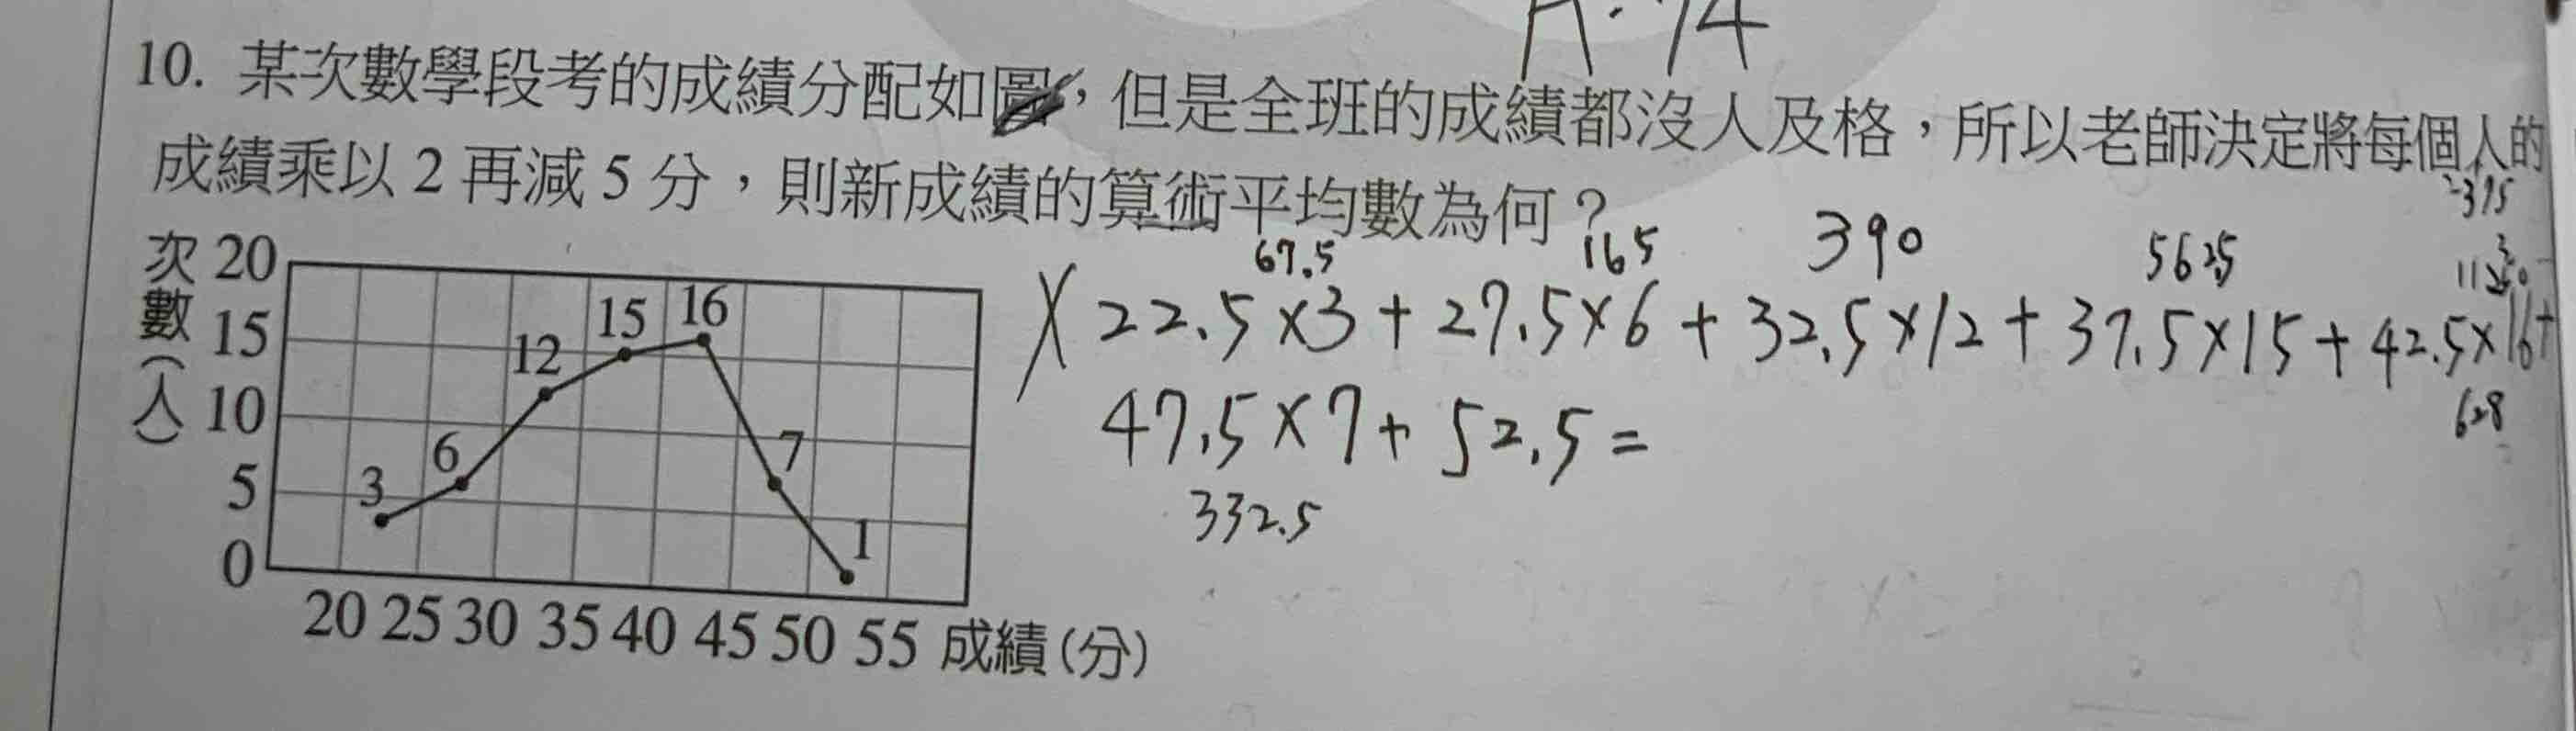 A：74
10. 某次數學段考的成績分配如圖，但是全班的成績都沒人及格，所以老師決定將每個人的
成績乘以 2 再減 5 分，則新成績的算術平均數為何？
67.5 165 390 562.5
22.5×3+27.5×6+32.5×12+37.5×15+42.5×16+
47.5×7+52.5=
332.5
次數(人)
20
15
10
5
0
3 6 12 15 16 7 1
20 25 30 35 40 45 50 55 成績(分)